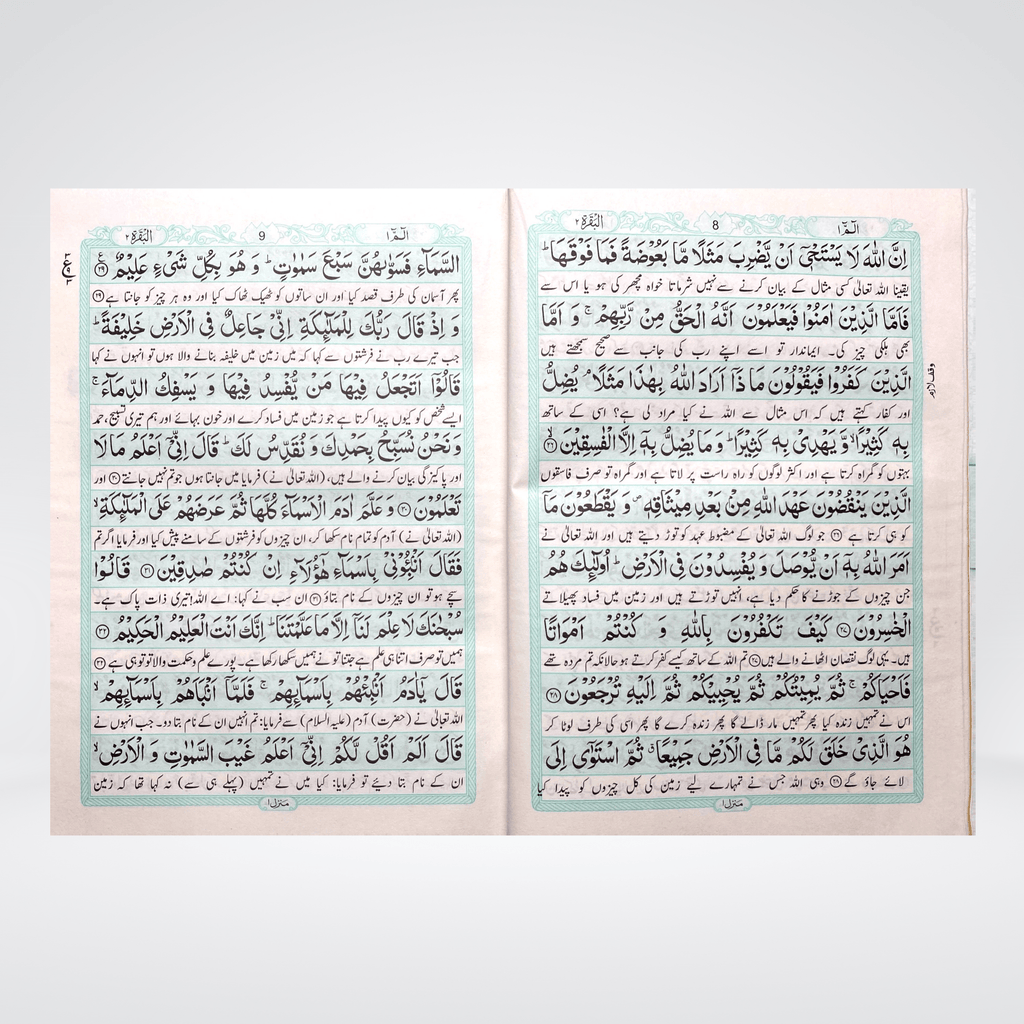 الٓمّٓ ١
8
البقرة ٢
اِنَّ اللّٰهَ لَا يَسْتَحْيٖٓ اَنْ يَّضْرِبَ مَثَلًا مَّا بَعُوْضَةً فَمَا فَوْقَهَاؕ
یقیناً اللہ تعالیٰ کسی مثال کے بیان کرنے سے نہیں شرماتا خواہ مچھر کی ہو یا اس سے
فَاَمَّا الَّذِيْنَ اٰمَنُوْا فَيَعْلَمُوْنَ اَنَّهُ الْحَقُّ مِنْ رَّبِّهِمْۚ وَ اَمَّا
بھی ہلکی چیز کی۔ ایماندار تو اسے اپنے رب کی جانب سے صحیح سمجھتے ہیں
الَّذِيْنَ كَفَرُوْا فَيَقُوْلُوْنَ مَا ذَاۤ اَرَادَ اللّٰهُ بِهٰذَا مَثَلًاۘ يُضِلُّ
وقف لازم
اور کفار کہتے ہیں کہ اس مثال سے اللہ نے کیا مراد لی ہے؟ اسی کے ساتھ
بِهٖ كَثِيْرًاۙ وَّ يَهْدِيْ بِهٖ كَثِيْرًاؕ وَ مَا يُضِلُّ بِهٖۤ اِلَّا الْفٰسِقِيْنَۙ ﴿۲۶﴾
بہتوں کو گمراہ کرتا ہے اور اکثر لوگوں کو راہ راست پر لاتا ہے اور گمراہ تو صرف فاسقوں
الَّذِيْنَ يَنْقُضُوْنَ عَهْدَ اللّٰهِ مِنْۢ بَعْدِ مِيْثَاقِهٖ۪ وَ يَقْطَعُوْنَ مَاۤ
کو ہی کرتا ہے ﴿۲۶﴾ جو لوگ اللہ تعالیٰ کے مضبوط عہد کو توڑ دیتے ہیں اور اللہ تعالیٰ نے
اَمَرَ اللّٰهُ بِهٖۤ اَنْ يُّوْصَلَ وَ يُفْسِدُوْنَ فِي الْاَرْضِؕ اُولٰٓئِكَ هُمُ
جن چیزوں کے جوڑنے کا حکم دیا ہے، انہیں توڑتے ہیں اور زمین میں فساد پھیلاتے
الْخٰسِرُوْنَ ﴿۲۷﴾ كَيْفَ تَكْفُرُوْنَ بِاللّٰهِ وَ كُنْتُمْ اَمْوَاتًا
ہیں۔ یہی لوگ نقصان اٹھانے والے ہیں ﴿۲۷﴾ تم اللہ کے ساتھ کیسے کفر کرتے ہو حالانکہ تم مردہ تھے
فَاَحْيَاكُمْۚ ثُمَّ يُمِيْتُكُمْ ثُمَّ يُحْيِيْكُمْ ثُمَّ اِلَيْهِ تُرْجَعُوْنَ ﴿۲۸﴾
اس نے تمہیں زندہ کیا پھر تمہیں مار ڈالے گا پھر زندہ کرے گا پھر اسی کی طرف لوٹا کر
هُوَ الَّذِيْ خَلَقَ لَكُمْ مَّا فِي الْاَرْضِ جَمِيْعًاۗ ثُمَّ اسْتَوٰۤى اِلَى
لائے جاؤ گے ﴿۲۸﴾ وہی اللہ جس نے تمہارے لیے زمین کی کل چیزوں کو پیدا کیا
منزل ١
الٓمّٓ ١
9
البقرة ٢
السَّمَآءِ فَسَوّٰىهُنَّ سَبْعَ سَمٰوٰتٍؕ وَ هُوَ بِكُلِّ شَيْءٍ عَلِيْمٌ۠ ﴿۲۹﴾
پھر آسمان کی طرف قصد کیا اور ان ساتوں کو ٹھیک ٹھاک کیا اور وہ ہر چیز کو جانتا ہے ﴿۲۹﴾
وَ اِذْ قَالَ رَبُّكَ لِلْمَلٰٓئِكَةِ اِنِّيْ جَاعِلٌ فِي الْاَرْضِ خَلِيْفَةًؕ
جب تیرے رب نے فرشتوں سے کہا کہ میں زمین میں خلیفہ بنانے والا ہوں تو انہوں نے کہا
قَالُوْۤا اَتَجْعَلُ فِيْهَا مَنْ يُّفْسِدُ فِيْهَا وَ يَسْفِكُ الدِّمَآءَۚ
ایسے شخص کو کیوں پیدا کرتا ہے جو زمین میں فساد کرے اور خون بہائے اور ہم تیری تسبیح، حمد
وَ نَحْنُ نُسَبِّحُ بِحَمْدِكَ وَ نُقَدِّسُ لَكَؕ قَالَ اِنِّيْۤ اَعْلَمُ مَا لَا
اور پاکیزگی بیان کرنے والے ہیں، (اللہ تعالیٰ نے) فرمایا میں جانتا ہوں جو تم نہیں جانتے ﴿۳۰﴾ اور
تَعْلَمُوْنَ ﴿۳۰﴾ وَ عَلَّمَ اٰدَمَ الْاَسْمَآءَ كُلَّهَا ثُمَّ عَرَضَهُمْ عَلَى الْمَلٰٓئِكَةِۙ
(اللہ تعالیٰ نے) آدم کو تمام نام سکھا کر، ان چیزوں کو فرشتوں کے سامنے پیش کیا اور فرمایا اگر تم
فَقَالَ اَنْۢبِـُٔوْنِيْ بِاَسْمَآءِ هٰۤؤُلَآءِ اِنْ كُنْتُمْ صٰدِقِيْنَ ﴿۳۱﴾ قَالُوْا
سچے ہو تو ان چیزوں کے نام بتاؤ ﴿۳۱﴾ ان سب نے کہا: اے اللہ! تیری ذات پاک ہے۔
سُبْحٰنَكَ لَا عِلْمَ لَنَاۤ اِلَّا مَا عَلَّمْتَنَاؕ اِنَّكَ اَنْتَ الْعَلِيْمُ الْحَكِيْمُ ﴿۳۲﴾
ہمیں تو صرف اتنا ہی علم ہے جتنا تو نے ہمیں سکھا رکھا ہے۔ پورے علم و حکمت والا تو تو ہی ہے ﴿۳۲﴾
قَالَ يٰۤاٰدَمُ اَنْۢبِئْهُمْ بِاَسْمَآئِهِمْۚ فَلَمَّاۤ اَنْۢبَاَهُمْ بِاَسْمَآئِهِمْۙ
اللہ تعالیٰ نے (حضرت) آدم (علیہ السلام) سے فرمایا: تم انہیں ان کے نام بتا دو۔ جب انہوں نے
قَالَ اَلَمْ اَقُلْ لَّكُمْ اِنِّيْۤ اَعْلَمُ غَيْبَ السَّمٰوٰتِ وَ الْاَرْضِۙ
ان کے نام بتا دیئے تو فرمایا: کیا میں نے تمہیں (پہلے ہی سے) نہ کہا تھا کہ زمین
منزل ١